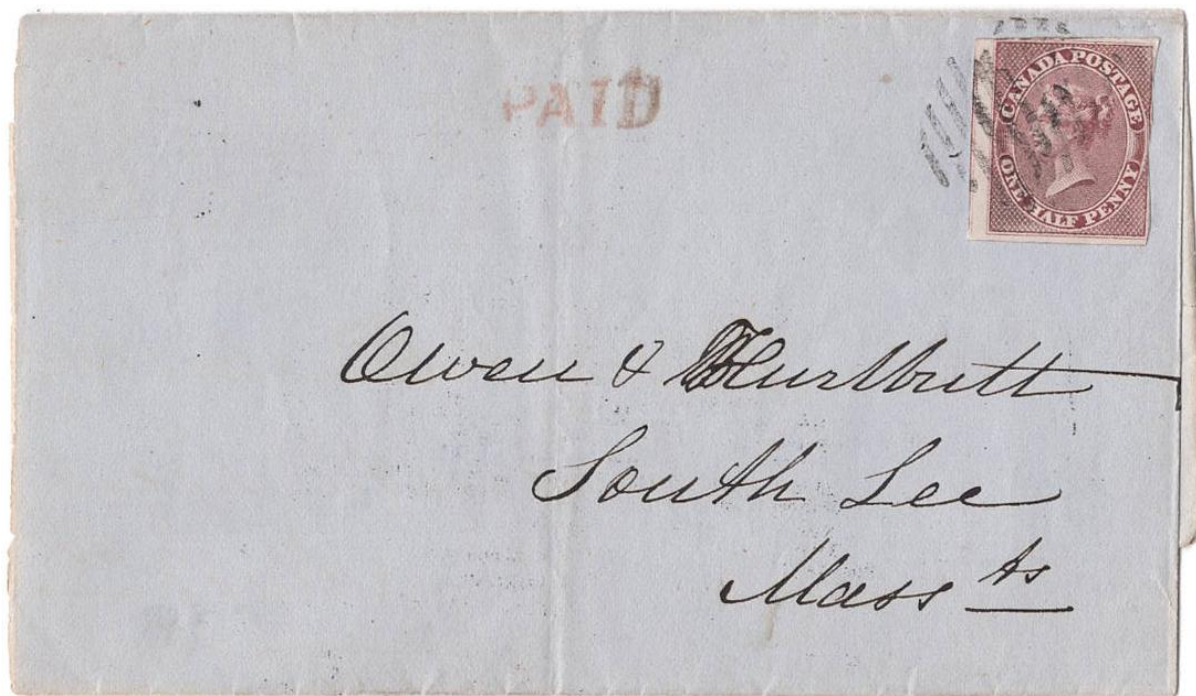 PAID
CANADA POSTAGE
ONE HALF PENNY
Owen & Hurlbutt
South Lee
Mass ts